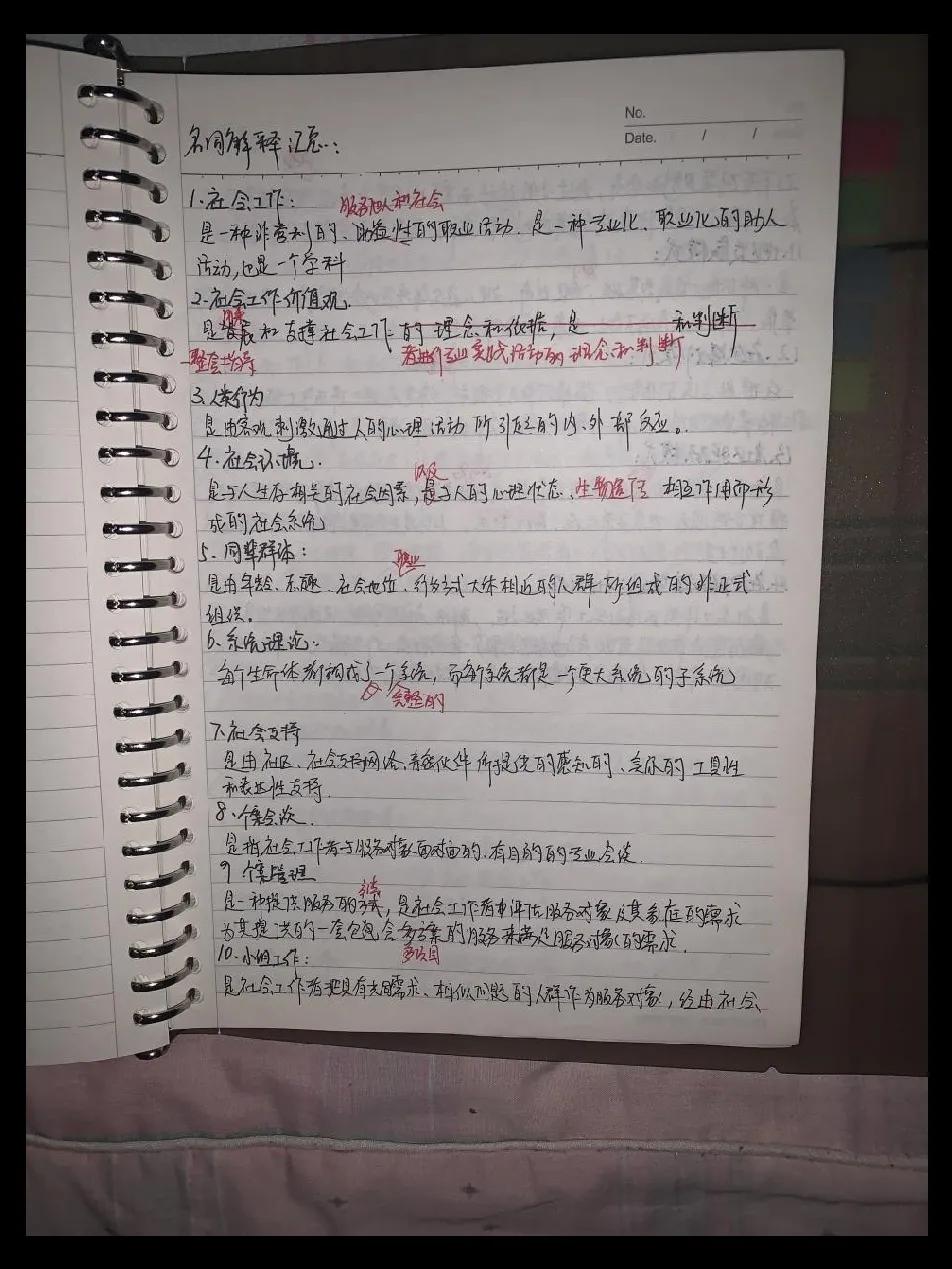 No.
Date. / /
名词解释汇总:
1.社会工作: 服务他人和社会
是一种非营利的、助益性的职业活动.是一种专业化、职业化的助人
活动,也是一个学科
2.社会工作价值观
是 和支撑社会工作的理念和依据,是 和判断
整套指导 专业实践活动的理念和判断
3.人类行为
是由客观刺激通过人的心理活动所引起的内、外部反应。
4.社会环境.
以及
是与人生存相关的社会因素,是与人的心理状态、生物遗传 相互作用而形
成的社会系统
5.同辈群体: 职业
是由年龄、志趣、社会地位、行为方式大体相近的人群所组成的非正式
组织。
6.系统理论.
每个生命体都构成了一个系统,而每个系统都是一个更大系统的子系统
完整的
7.社会支持
是由社区、社会支持网络、亲密伙伴所提供的感知的、实际的工具性
和表达性支持.
8.个案会谈
是指社会工作者与服务对象面对面的、有目的的专业会谈.
9 个案管理
是一种提供服务的方式,是社会工作者由评估服务对象及其家庭的需求
为其提供的一套包含 的服务来满足服务对象的需求.
10.小组工作: 多项目
是社会工作者把具有共同需求、相似问题的人群作为服务对象,经由社会